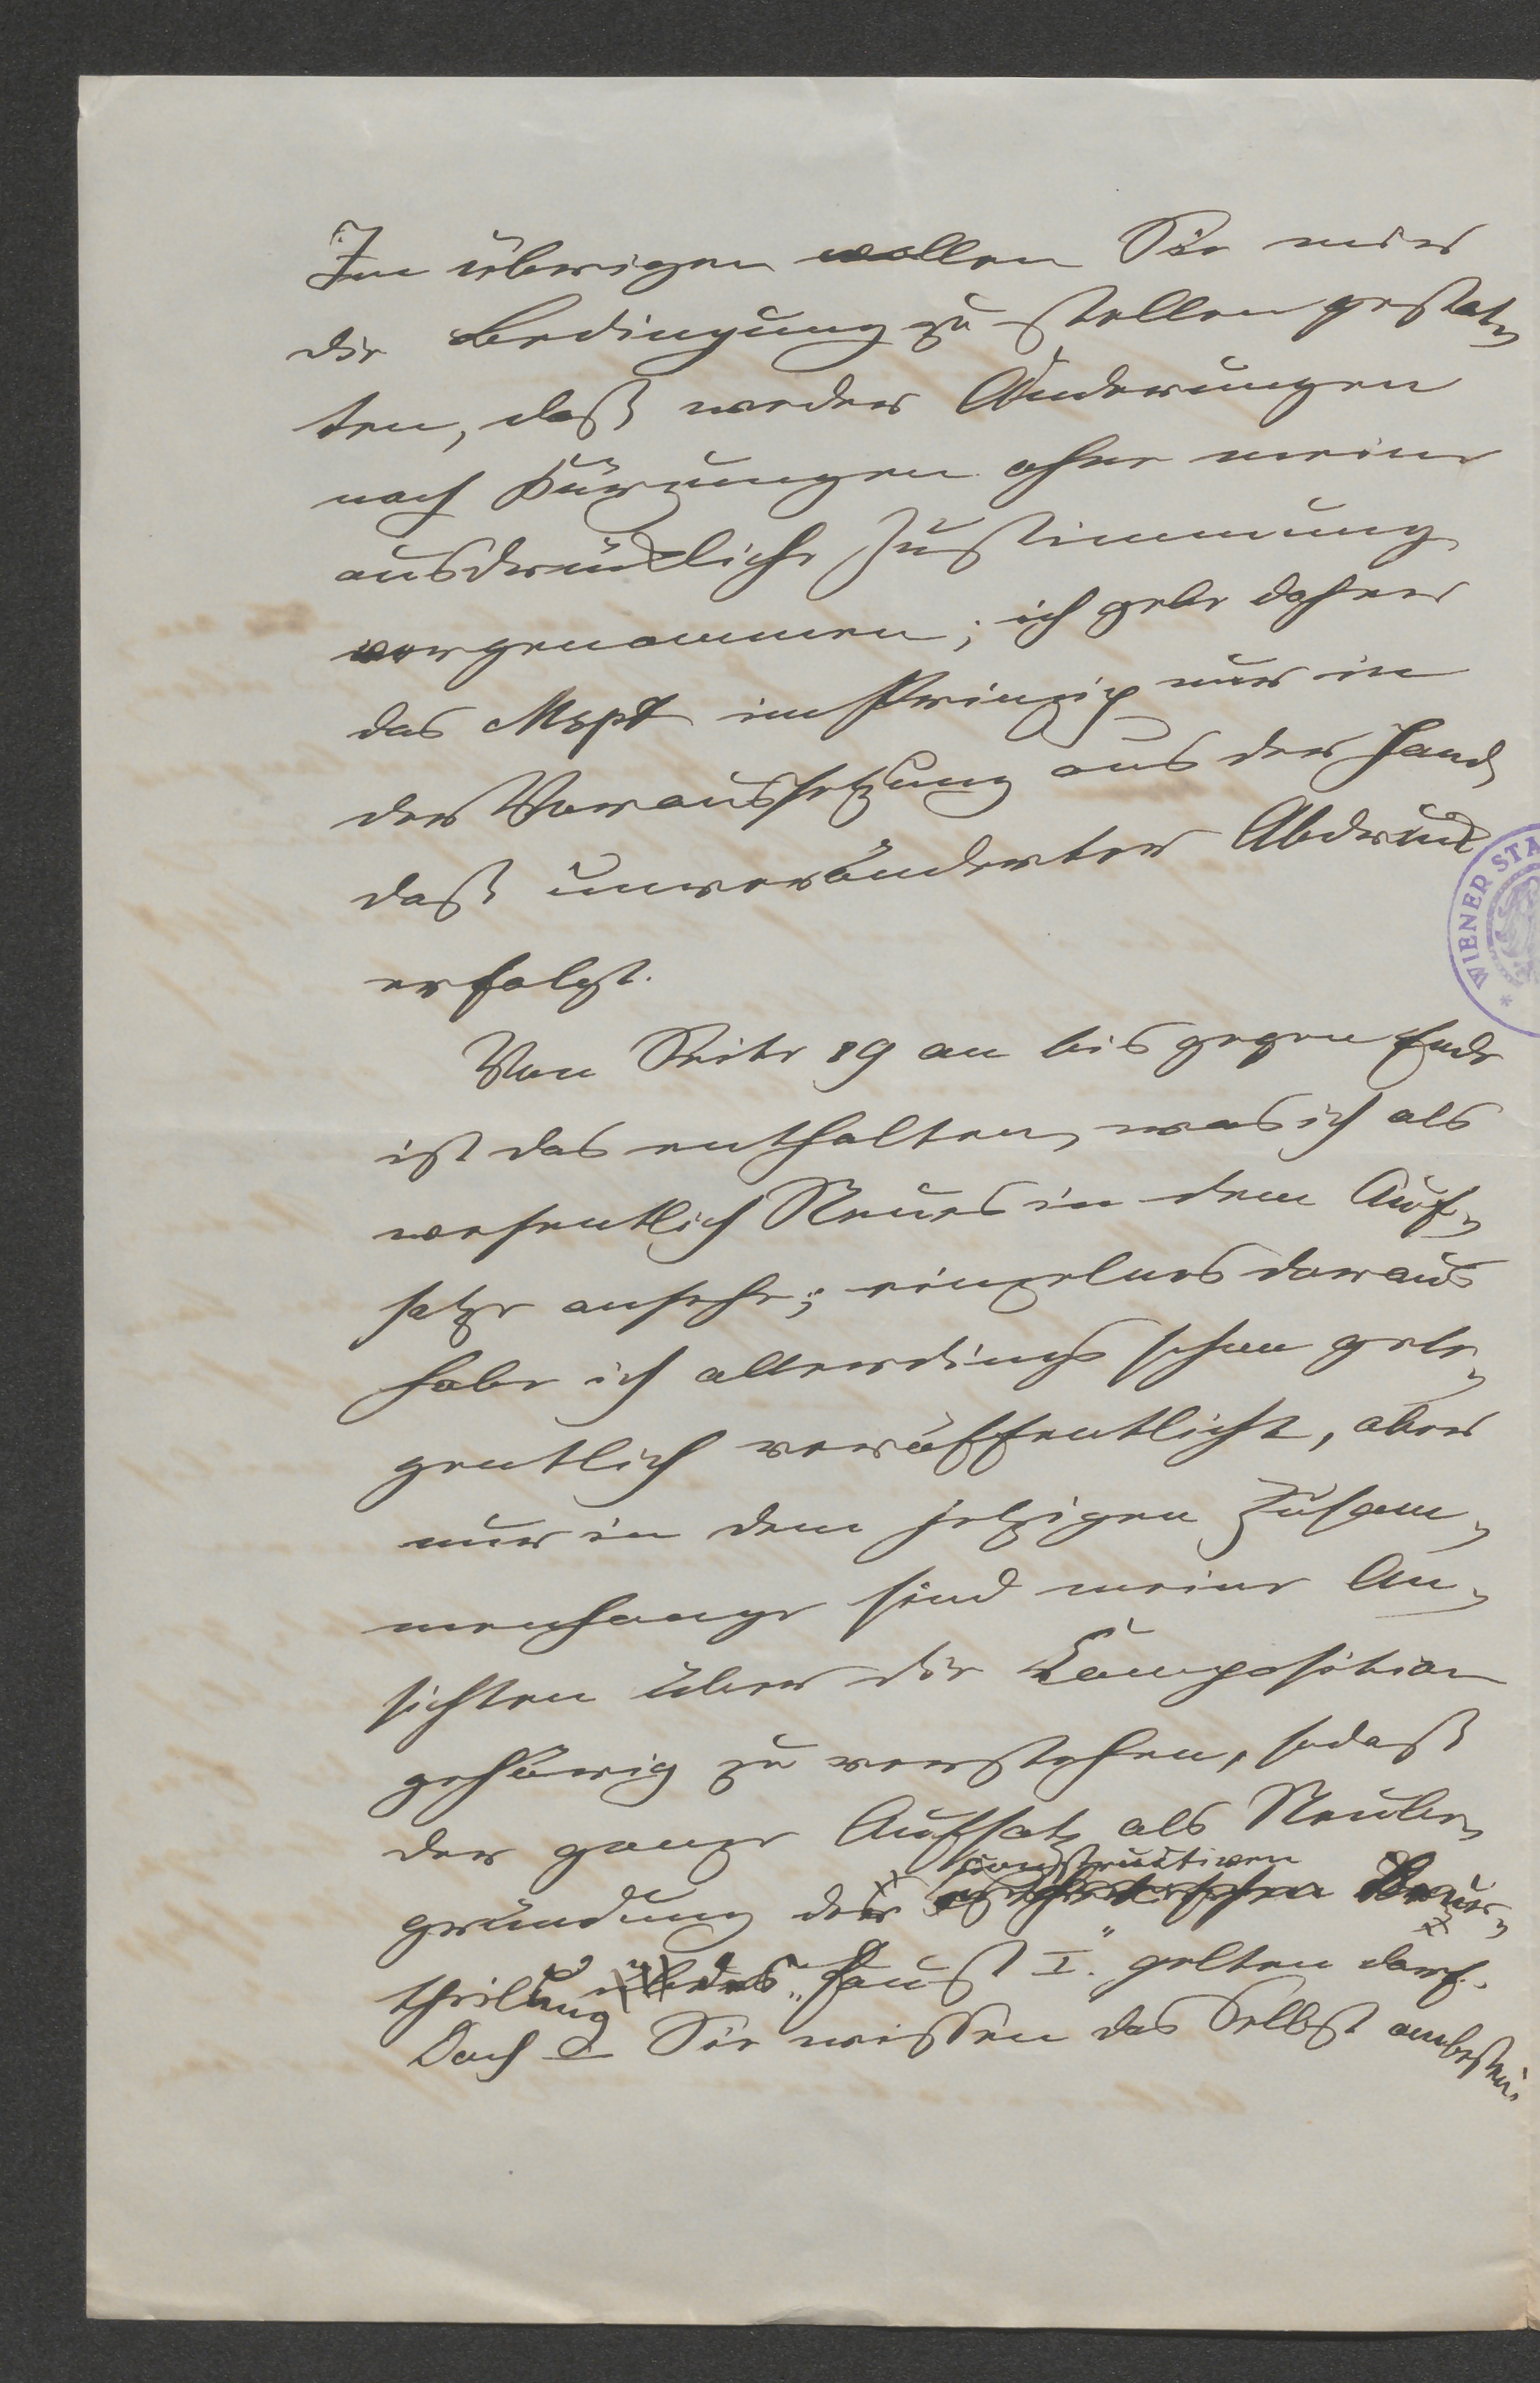 Im übrigen wollen Sie mir
die Bedingung zu stellen gestat-
ten, daß weder Änderungen
noch Kürzungen ohne meine
ausdrückliche Zustimmung
vorgenommen; ich gebe daher
das Mspt im Prinzip nur in
der Voraussetzung aus der Hand,
daß unveränderter Abdruck
erfolgt.
WIENER STA
Von Seite 19 an bis gegen Ende
ist das enthalten, was ich als
wesentlich Neues in dem Auf-
satze ansehe; einzelnes daraus
habe ich allerdings schon gele-
gentlich veröffentlicht, aber
nur in dem jetzigen Zusam-
menhange sind meine An-
sichten über die Composition
gehörig zu verstehen, sodaß
der ganze Aufsatz als Neube-
constructiven
gründung der ästhetischen Beur-
theilung des „Faust I." gelten darf.
Doch Sie wissen das Selbst am besten.